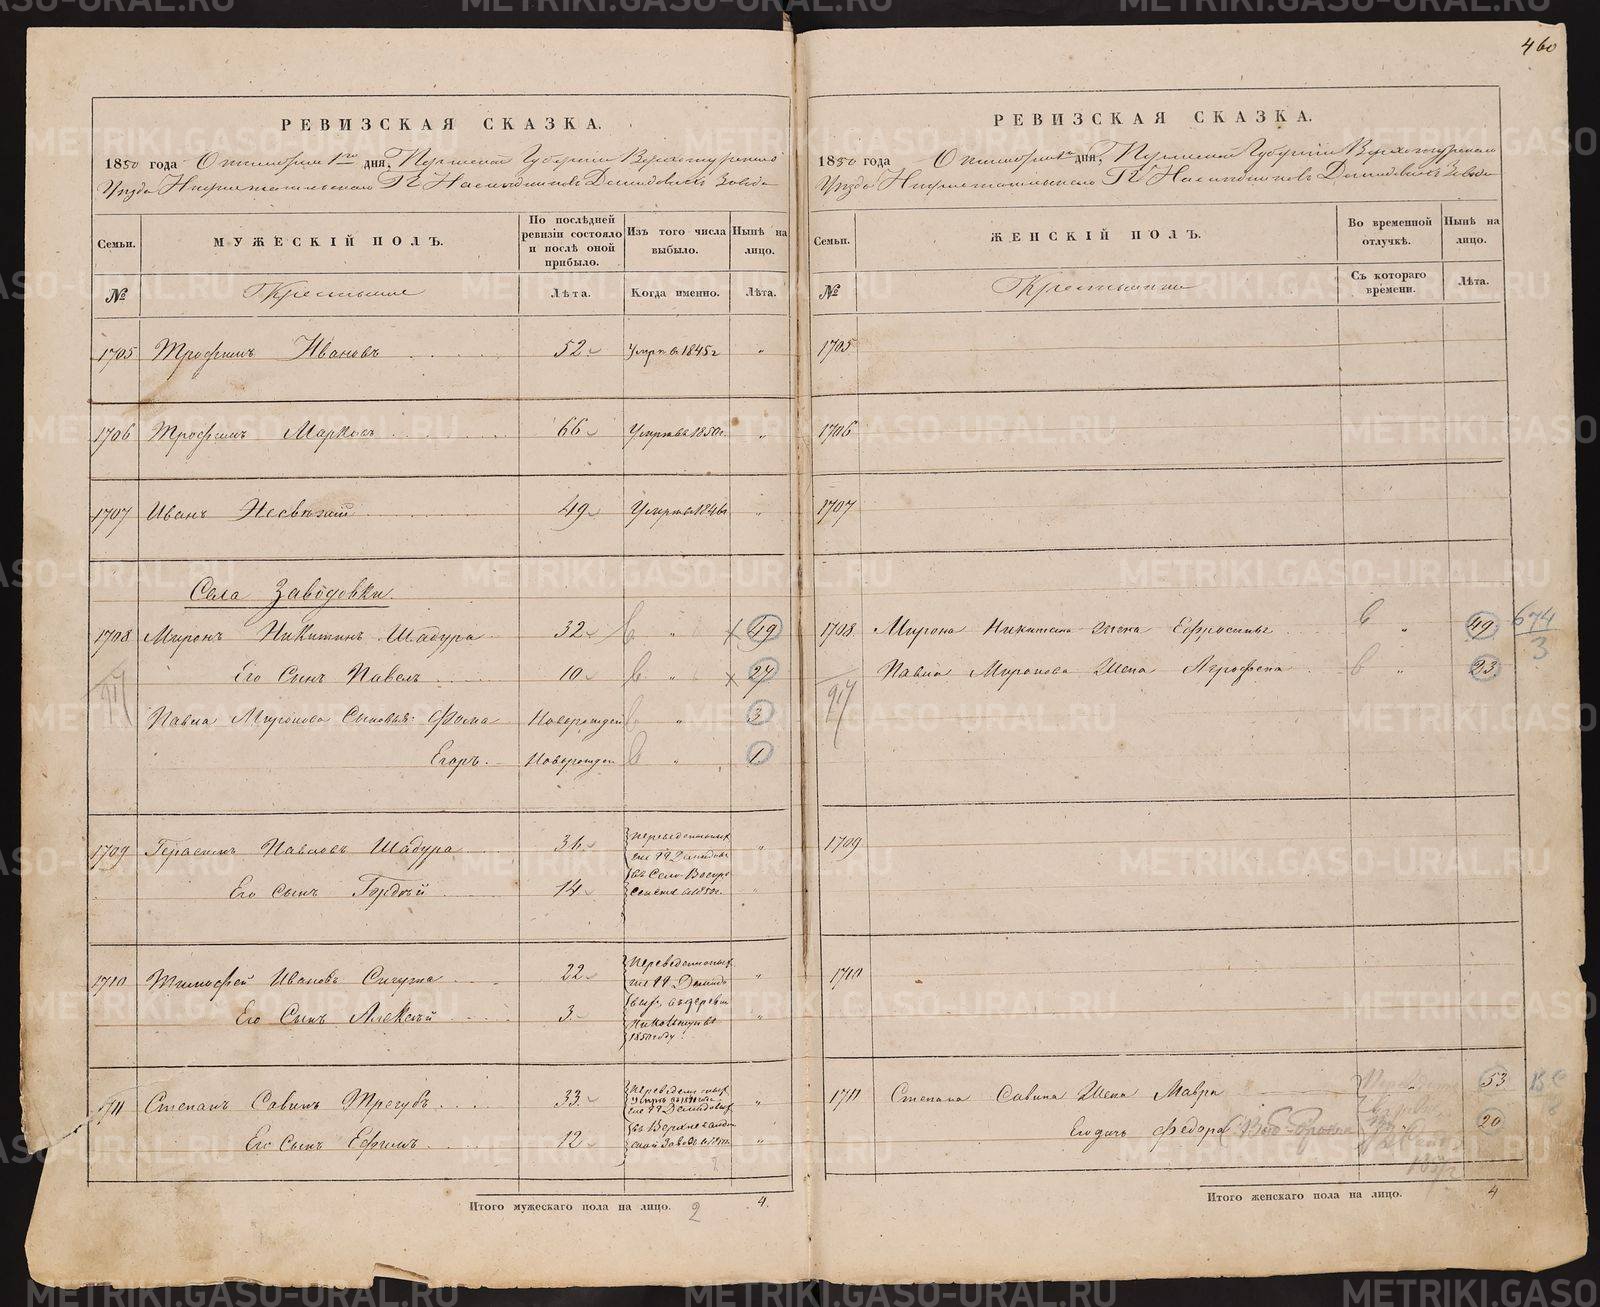 460
РЕВИЗСКАЯ СКАЗКА.
1850 года Октября 1го дня, Пермской Губернии Верхотурскаго
Уезда Нижнетагильскаго Гг. Наследников Демидовых Завода
Семьи. МУЖЕСКІЙ ПОЛЪ. По послѣдней ревизіи состояло и послѣ оной прибыло. Изъ того числа выбыло. Нынѣ на лицо.
№ Крестьяне Лѣта. Когда именно. Лѣта.
1705 Трофимъ Ивановъ 52 Умре въ 1845 г „
1706 Трофимъ Марковъ 66 Умре въ 1850 г. „
1707 Иванъ Несвѣжій 49 Умре въ 1846 г „
Села Заводовки
1708 Миронъ Никитинъ Шадура 32 „ 49
Его Сынъ Павелъ 10 „ 27
917
Павла Миронова Сыновья: Фома Новорожден „ 3
Егоръ Новорожден „ 1
1709 Герасимъ Павловъ Шадура 31 Переведенных
гг Демидовы
въ Село Воскре
сенске въ 1850 г.
Его сынъ Гордѣй 14 „
1710 Тимофей Ивановъ Сичужа 22 Переведенных „
гг Демидо
вых, въ деревню
1850 году
Его Сынъ Алексѣй 3 „
1711 Степанъ Савинъ Трегубъ 33 Переведенных „
гг Демидовых
Его сынъ Ефимъ 12 „
Итого мужескаго пола на лицо. 2 4.
РЕВИЗСКАЯ СКАЗКА.
1850 года Октября 1го дня, Пермской Губерніи Верхотурскаго
Уезда Нижнетагильскаго Гг. Наследниковъ Демидовыхъ Завода
Семьи. ЖЕНСКІЙ ПОЛЪ. Во временной отлучкѣ. Нынѣ на лицо.
№ Крестьянки Съ котораго времени. Лѣта.
1705
1706
1707
1708 Мирона Никитина жена Ефросинья „ 49 674/3
Павла Миронова Жена Агрофена „ 23
917
1709
1710
1711 Степана Савина Жена Мавра „ 53
Его дочь Федора „ 20
Итого женскаго пола на лицо. 4
METRIKI.GASO-URAL.RU